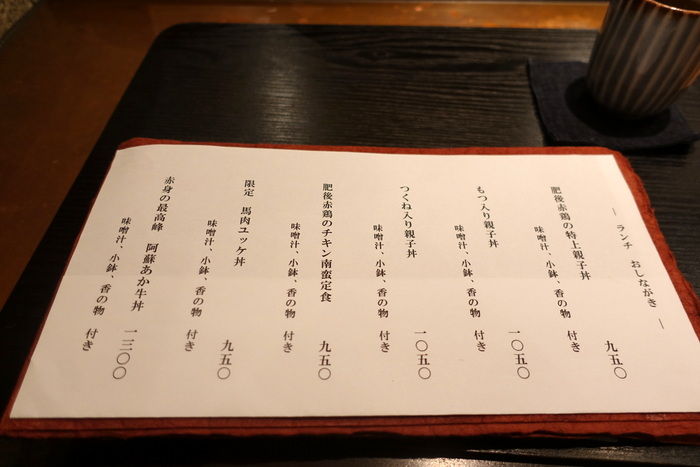 ― ランチ おしながき ―
肥後赤鶏の特上親子丼 九五〇
味噌汁、小鉢、香の物 付き
もつ入り親子丼 一〇五〇
味噌汁、小鉢、香の物 付き
つくね入り親子丼 一〇五〇
味噌汁、小鉢、香の物 付き
肥後赤鶏のチキン南蛮定食 九五〇
味噌汁、小鉢、香の物 付き
限定 馬肉ユッケ丼 九五〇
味噌汁、小鉢、香の物 付き
赤身の最高峰 阿蘇あか牛丼 一三〇〇
味噌汁、小鉢、香の物 付き